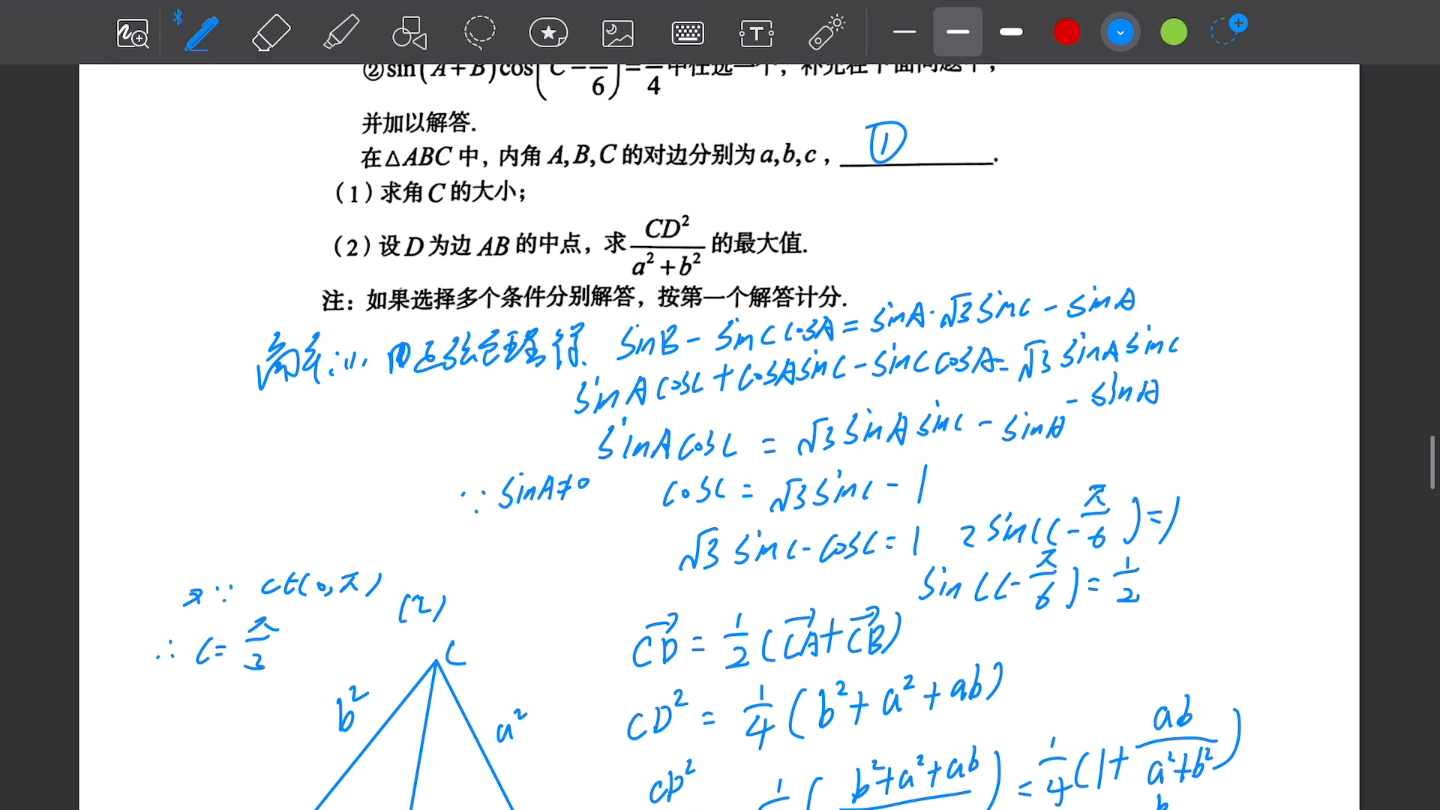 ②sin(A+B)cos(C-π/6)=3/4中任选一个，补充在下面问题中，
并加以解答.
在△ABC中，内角A,B,C的对边分别为a,b,c，①.
(1)求角C的大小；
(2)设D为边AB的中点，求CD²/(a²+b²)的最大值.
注：如果选择多个条件分别解答，按第一个解答计分.
由正弦定理得 sinB-sinCcosA=sinA·√3sinC-sinA
sinAcosC+cosAsinC-sinCcosA=√3sinAsinC-sinA
sinAcosC=√3sinAsinC-sinA
∵sinA≠0 cosC=√3sinC-1
√3sinC-cosC=1 2sin(C-π/6)=1
sin(C-π/6)=1/2
又∵C∈(0,π)
∴C=π/3
(2)
C
b²
a²
CD=1/2(CA+CB)
CD²=1/4(b²+a²+ab)
CD² b²+a²+ab)=1/4(1+ab/(a²+b²))